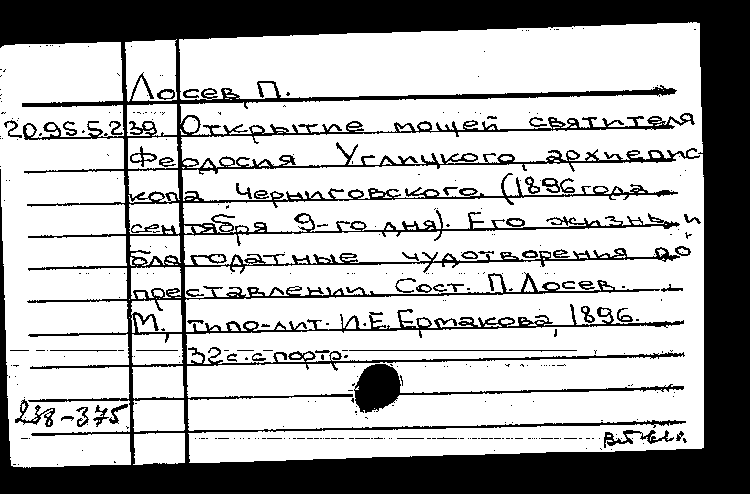 Лосев, П.
20.95.5.239. Открытие мощей святителя
Феодосия Углицкого, архиепис-
копа Черниговского. (1896 года
сентября 9-го дня). Его жизнь и
благодатные чудотворения по
преставлении. Сост. П. Лосев.
М., типо-лит. И.Е. Ермакова, 1896.
32 с. с портр.
238-375